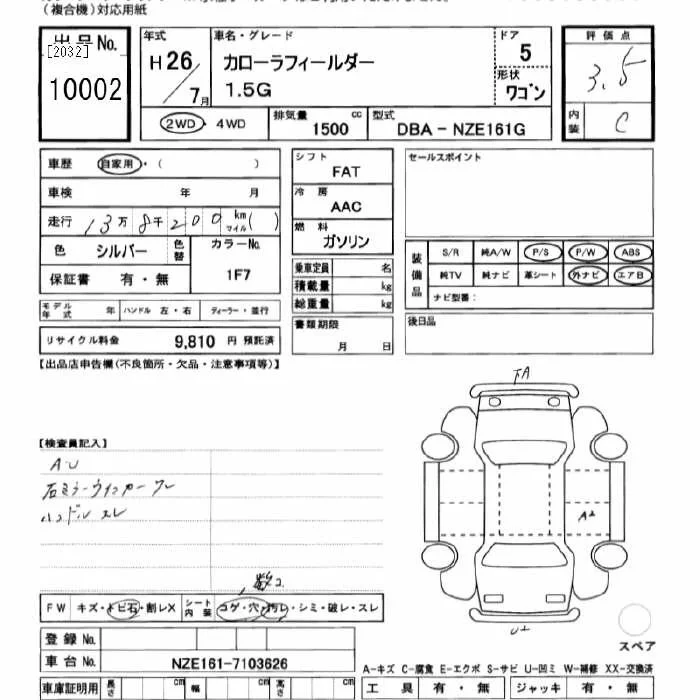 （複合機）対応用紙
出品No.
[2032]
10002
年式
H26/7月
車名・グレード
カローラフィールダー
1.5G
ドア
5
形状
ワゴン
評価点
3.5
内装
C
2WD・4WD
排気量 cc
1500
型式
DBA - NZE161G
車歴 自家用・（ ）
車検 年 月
走行 13万8千200 km マイル( )
色 シルバー 色替
カラーNo.
1F7
保証書 有・無
シフト
FAT
冷房
AAC
燃料
ガソリン
乗車定員 名
積載量 kg
総重量 kg
書類期限
月 日
セールスポイント
装備品
S/R 純A/W P/S P/W ABS
純TV 純ナビ 革シート 外ナビ エアB
ナビ型番：
後日品
モデル年式 年 ハンドル 左・右 ディーラー・並行
リサイクル料金 9,810 円 預託済
【出品店申告欄(不良箇所・欠品・注意事項等)】
【検査員記入】
A・U
右ミラーウインカーワレ
ハンドル スレ
数コ
FW キズ・トビ石・割レX シート内装 コゲ・穴・汚レ・シミ・破レ・スレ
登録No.
車台No. NZE161-7103626
車庫証明用 長さ cm 幅 cm 高さ cm
A2
スペア
A-キズ C-腐食 E-エクボ S-サビ U-凹ミ W-補修 XX-交換済
工具 有・無 ジャッキ 有・無